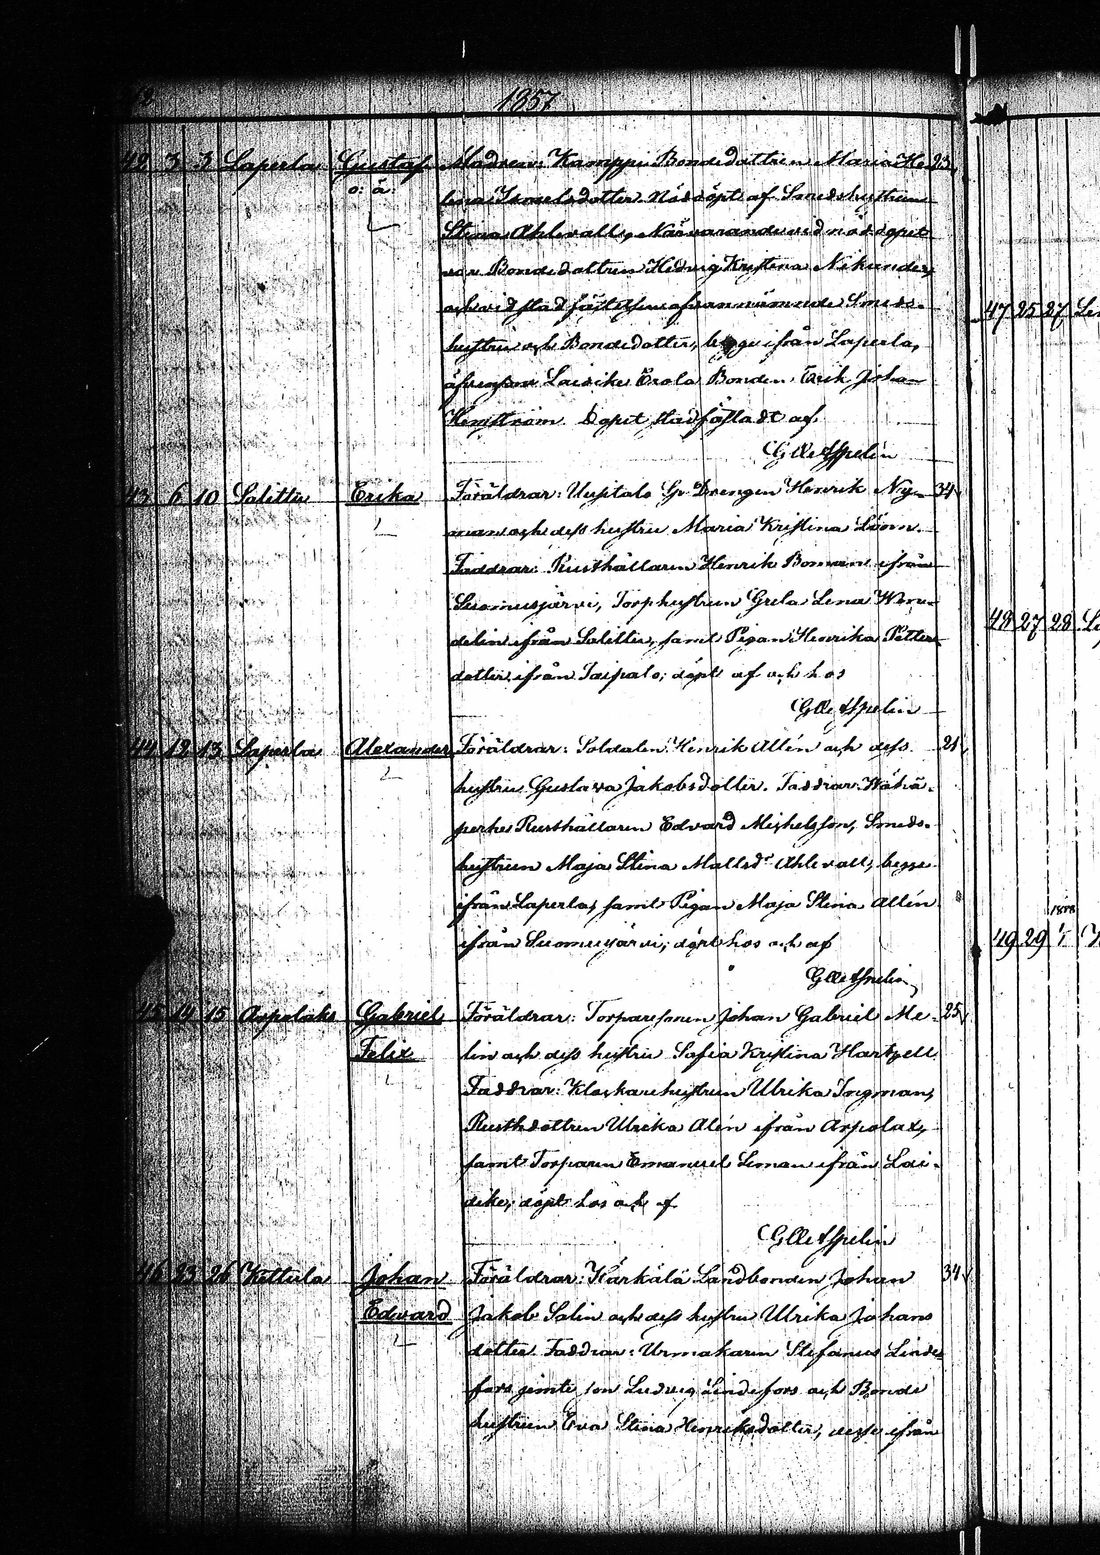 1857
42 3 3 Laperla Gustaf Modren: Kamppi Bondedottren Maria He- 23
o: ä. lena Ismaelsdotter. Nöddöpt af Smedshustrun
Stina Ahlevall, Närvarande vid nöddopet
var Bondedottren Hedvig Kristina Nikander,
och vid stadfästelsen ofvannämnde Smeds-
hustru och Bondedotter, begge ifrån Laperla,
äfvensom Laidike Erola Bonden Erik Johan
Hemström. Dopet stadfästadt af
G Ulle Aspelin
43 6 10 Salittu Erika Föräldrar: Uusitalo Gr Drengen Henrik Ny- 34
man och dess hustru Maria Kristina Lönn.
Faddrar: Rusthållaren Henrik Boman ifrån
Suomusjärvi, Torphustrun Greta Lena Wen-
delin ifrån Salittu, samt Pigan Henrika Petters
dotter ifrån Taipalo; döpt af och hos
44 12 13 Laperla Alexander Föräldrar: Soldaten Henrik Allén och dess 21
hustru Gustava Jakobsdotter. Faddrar: Wähä-
perhe Rusthållaren Edvard Michelsson, Smeds-
hustrun Maja Stina Mattsdr Ahlevall, begge
ifrån Laperla, samt Pigan Maja Stina Allén
ifrån Suomusjärvi; döpt hos och af
45 14 15 Arpolaks Gabriel Föräldrar: Torparesonen Johan Gabriel Me- 25
Felix lin och dess hustru Sofia Kristina Hartzell
Faddrar: Klockarehustrun Ulrika Ingman,
Rusthdottren Ulrika Alén ifrån Arpolax,
samt Torparen Emanuel Leman ifrån Lai-
dike; döpt hos och af
46 23 26 Kettula Johan Föräldrar: Härkälä Landbonden Johan 34
Edvard Jakob Salin och dess hustru Ulrika Johans
dotter. Faddrar: Urmakaren Stefanus Linde-
fors jemte son Ludvig Lindefors och Bonde
hustrun Eva Stina Henriksdotter, desse ifrån
47 25 27
48 27 28
49 29